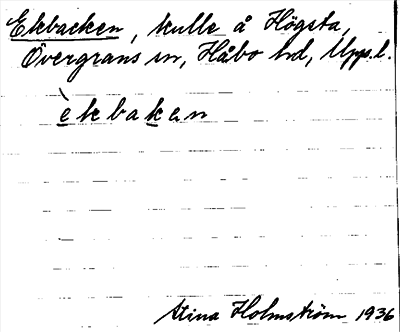 Ekbacken, kulle å Högsta,
Övergrans sn, Håbo hd, Upps. l.
èkbakan
Stina Holmström 1936